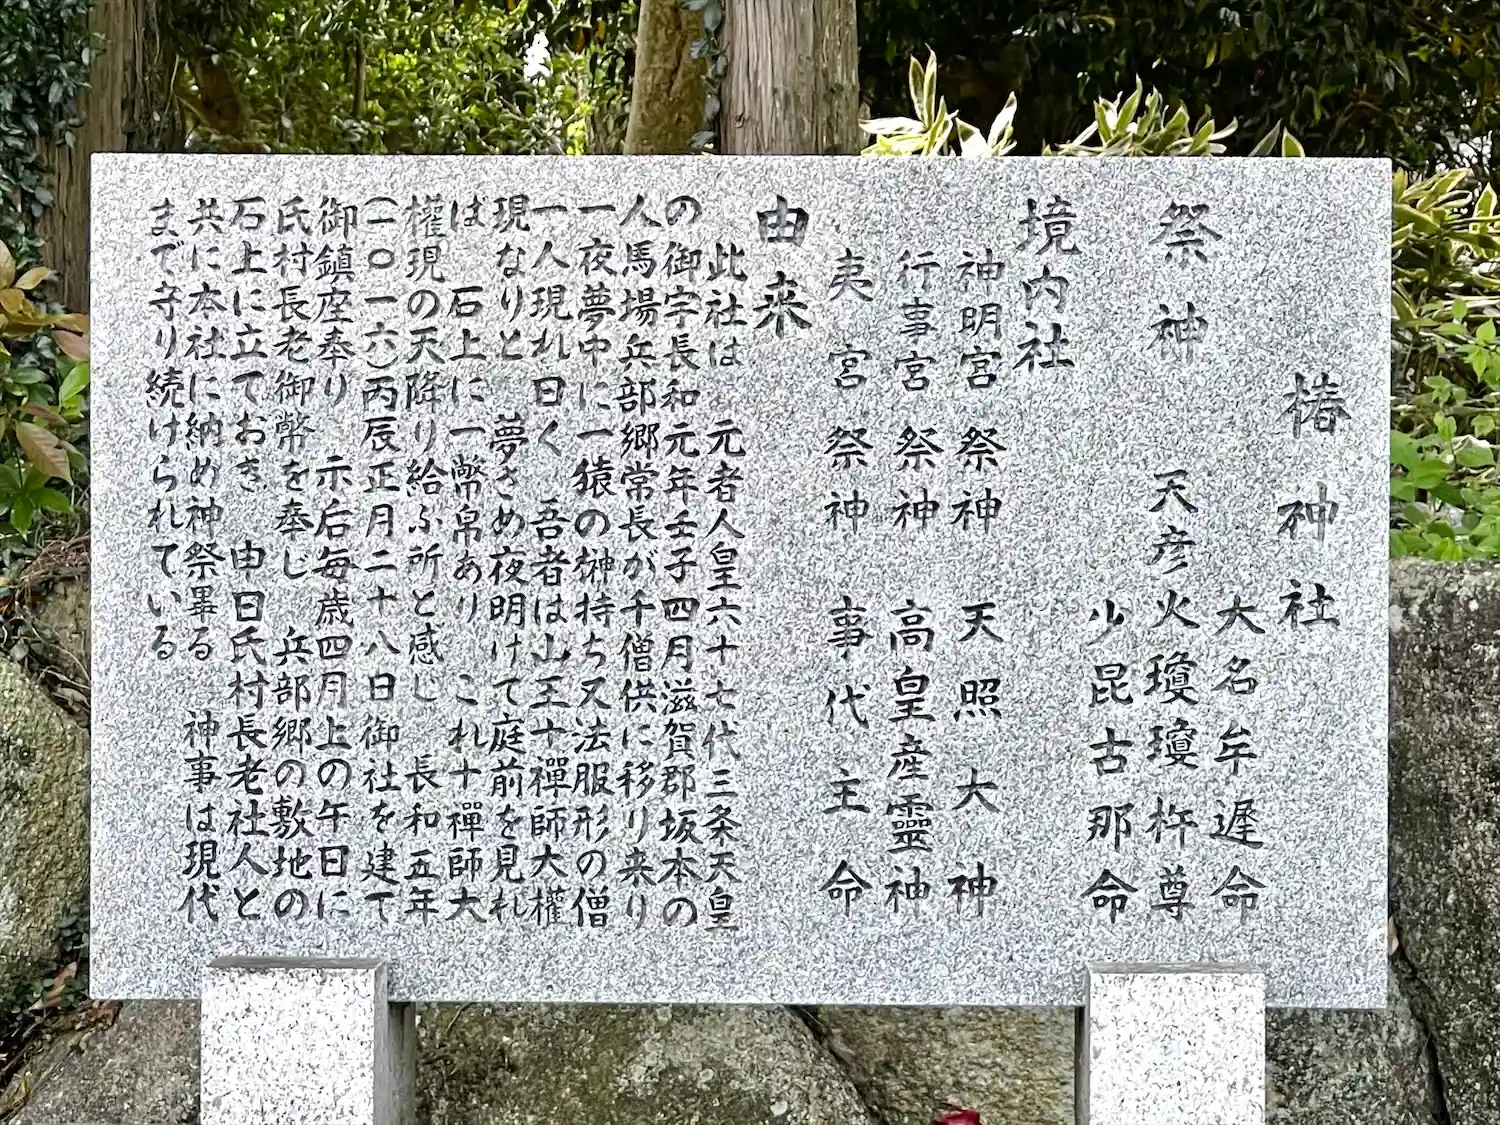 椿神社
祭神
大名牟遅命
天彦火瓊瓊杵尊
少昆古那命
境内社
神明宮祭神 天照大神
行事宮祭神 高皇産靈神
夷宮祭神 事代主命
由来
此社は 元者人皇六十七代三条天皇
の御宇長和元年壬子四月滋賀郡坂本の
人馬場兵部郷常長が千僧供に移り来り
一夜夢中に一猿の榊持ち又法服形の僧
一人現れ曰く 吾者は山王十禪師大權
現なりと 夢さめ夜明けて庭前を見れ
ば 石上に一幣帛あり これ十禪師大
權現の天降り給ふ所と感じ 長和五年
(一〇一六)丙辰正月二十八日御社を建て
御鎮座奉り 示后毎歳四月上の午日に
氏村長老御幣を奉じ 兵部郷の敷地の
石上に立ておき 申日氏村長老社人と
共に本社に納め神祭畢る 神事は現代
まで守り続けられている